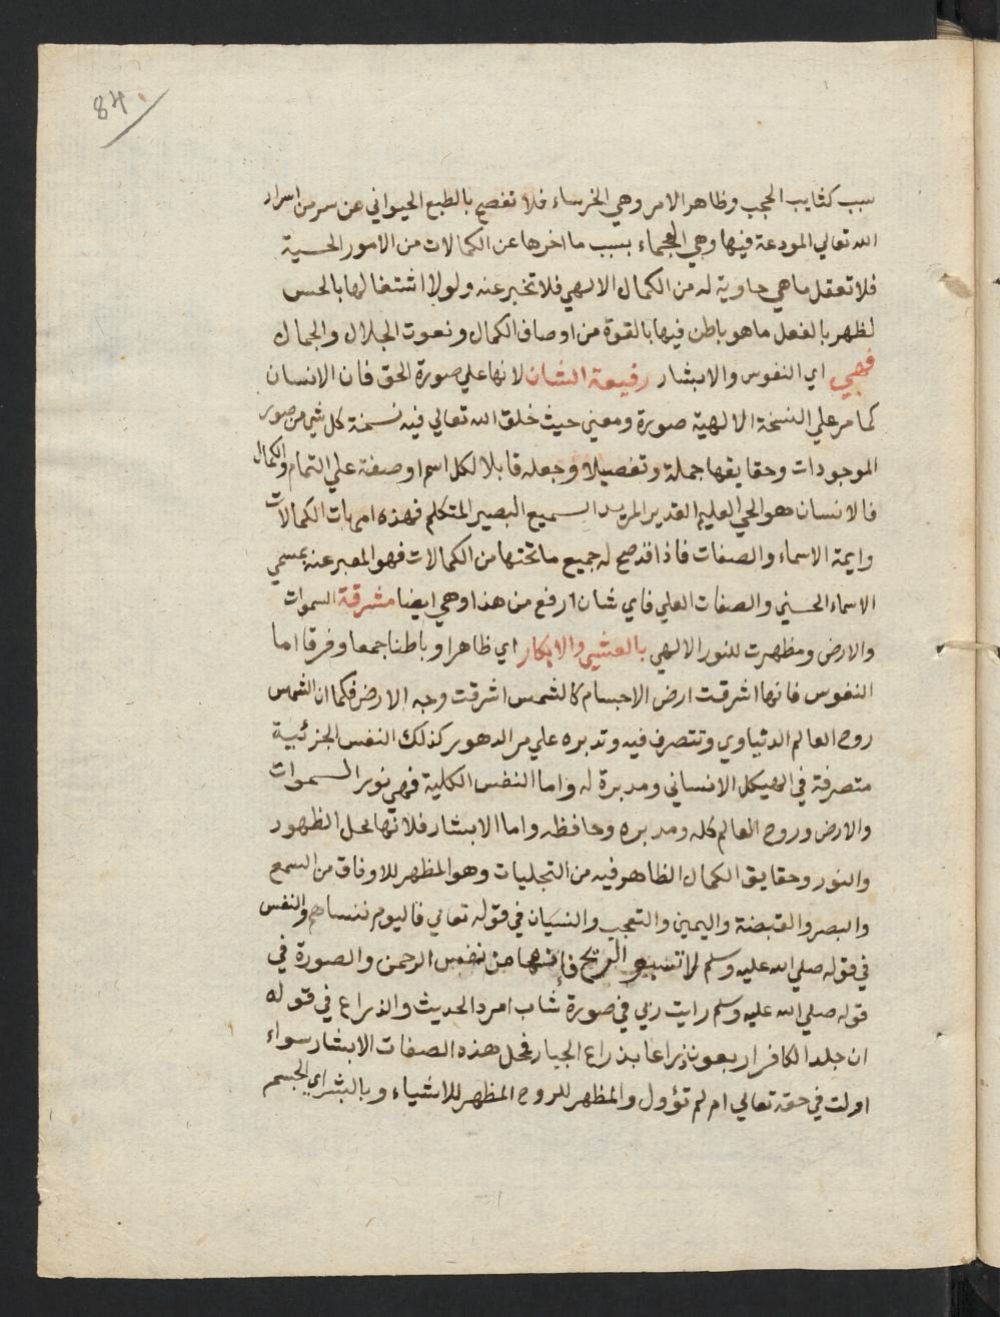 84
سبب كثايب الحجب وظاهر الامر وهي الخرساء فلا تفصح بالطبع الحيواني عن سر من اسرار
الله تعالي المودعة فيها وهي العجماء بسبب ما اخرها عن الكمالات من الامور الحسية
فلا تعقل ما هي حاوية له من الكمال الالهي فلا تخبر عنه ولولا اشتغالها بالحس
لظهر بالفعل ما هو باطن فيها بالقوة من اوصاف الكمال ونعوت الجلال والجمال
فهي اي النفوس والابشار رفيعة الشان لانها علي صورة الحق فان الانسان
كما مر علي النسخة الالهية صورة ومعني حيث خلق الله تعالي فيه نسخة كل شي من صور
الموجودات وحقايقها جملة وتفصيلا وجعله قابلا لكل اسم او صفة علي التمام والكمال
فالانسان هو الحي العليم القدير المريد السميع البصير المتكلم فهذه امهات الكمالات
وايمة الاسماء والصفات فاذا قد صح له جميع ما تحتها من الكمالات فهو المعبر عنه بمسمي
الاسماء الحسني والصفات العلي فاي شان ارفع من هذا وهي ايضا مشرقة السموات
والارض ومظهرت للنور الالهي بالعشي والابكار اي ظاهرا وباطنا جمعا وفرقا اما
النفوس فانها اشرقت ارض الاجسام كالشمس اشرقت وجه الارض فكما ان الشمس
روح العالم الدنياوي وتتصرف فيه وتدبره علي مر الدهور كذلك النفس الجزئية
متصرفة في الهيكل الانساني ومدبرة له واما النفس الكلية فهي نور السموات
والارض وروح العالم كله ومدبره وحافظه واما الابشار فلانها محل الظهور
والنور وحقايق الكمال الظاهر فيه من التجليات وهو المظهر للاوفاق من السمع
والبصر والقبضة واليمين والتعجب والنسيان في قوله تعالي فاليوم ننساهم والنفس
في قوله صلي الله عليه وسلم لا تسبو الريح فانها من نفس الرحمن والصورة في
قوله صلي الله عليه وسلم رايت ربي في صورة شاب امرد الحديث والذراع في قوله
ان جلد الكافر اربعون ذراعا بذراع الجبار فمحل هذه الصفات الابشار سواء
اولت في حقه تعالي ام لم تؤول والمظهر للروح المظهر للاشياء وبالبشر اي الجسم